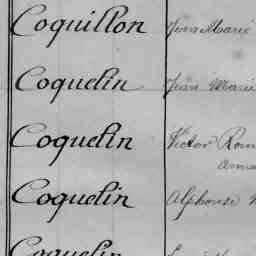 Coquillon Jean Marie
Coquelin Jean Marie
Coquelin Victor
Coquelin Alphonse
Coquelin